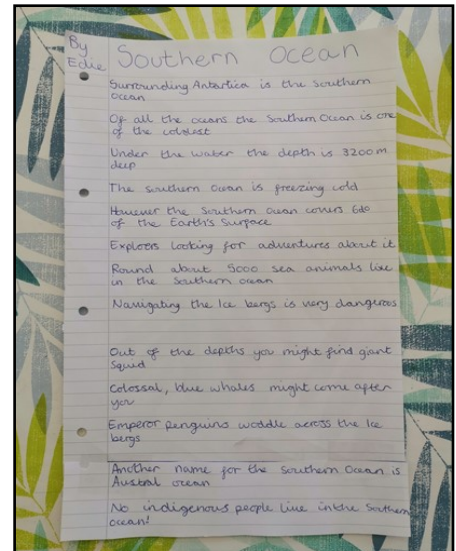 By
Edie
Southern Ocean
Surrounding Antartica is the Southern
Ocean
Of all the oceans the Southern Ocean is one
of the coldest
Under the water the depth is 3200m
deep
The southern Ocean is freezing cold
However the Southern Ocean covers
of the Earth's Surface
Explorers looking for adventures about it
Round about 5000 sea animals live
in the Southern ocean
Navigating the Ice bergs is very dangerous
Out of the depths you might find giant
squid
Colossal, blue whales might come after
you
Emperor penguins waddle across the Ice
bergs
Another name for the Southern Ocean is
Austral ocean
No indigenous people live in the Southern
ocean!